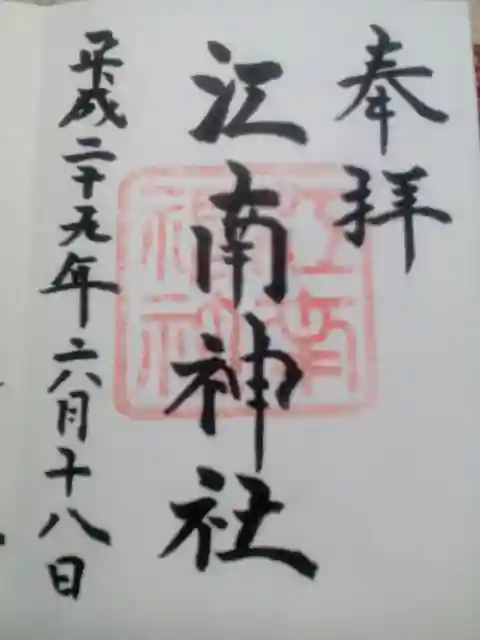 奉拝
江南神社
平成二十九年六月十八日
江南神社